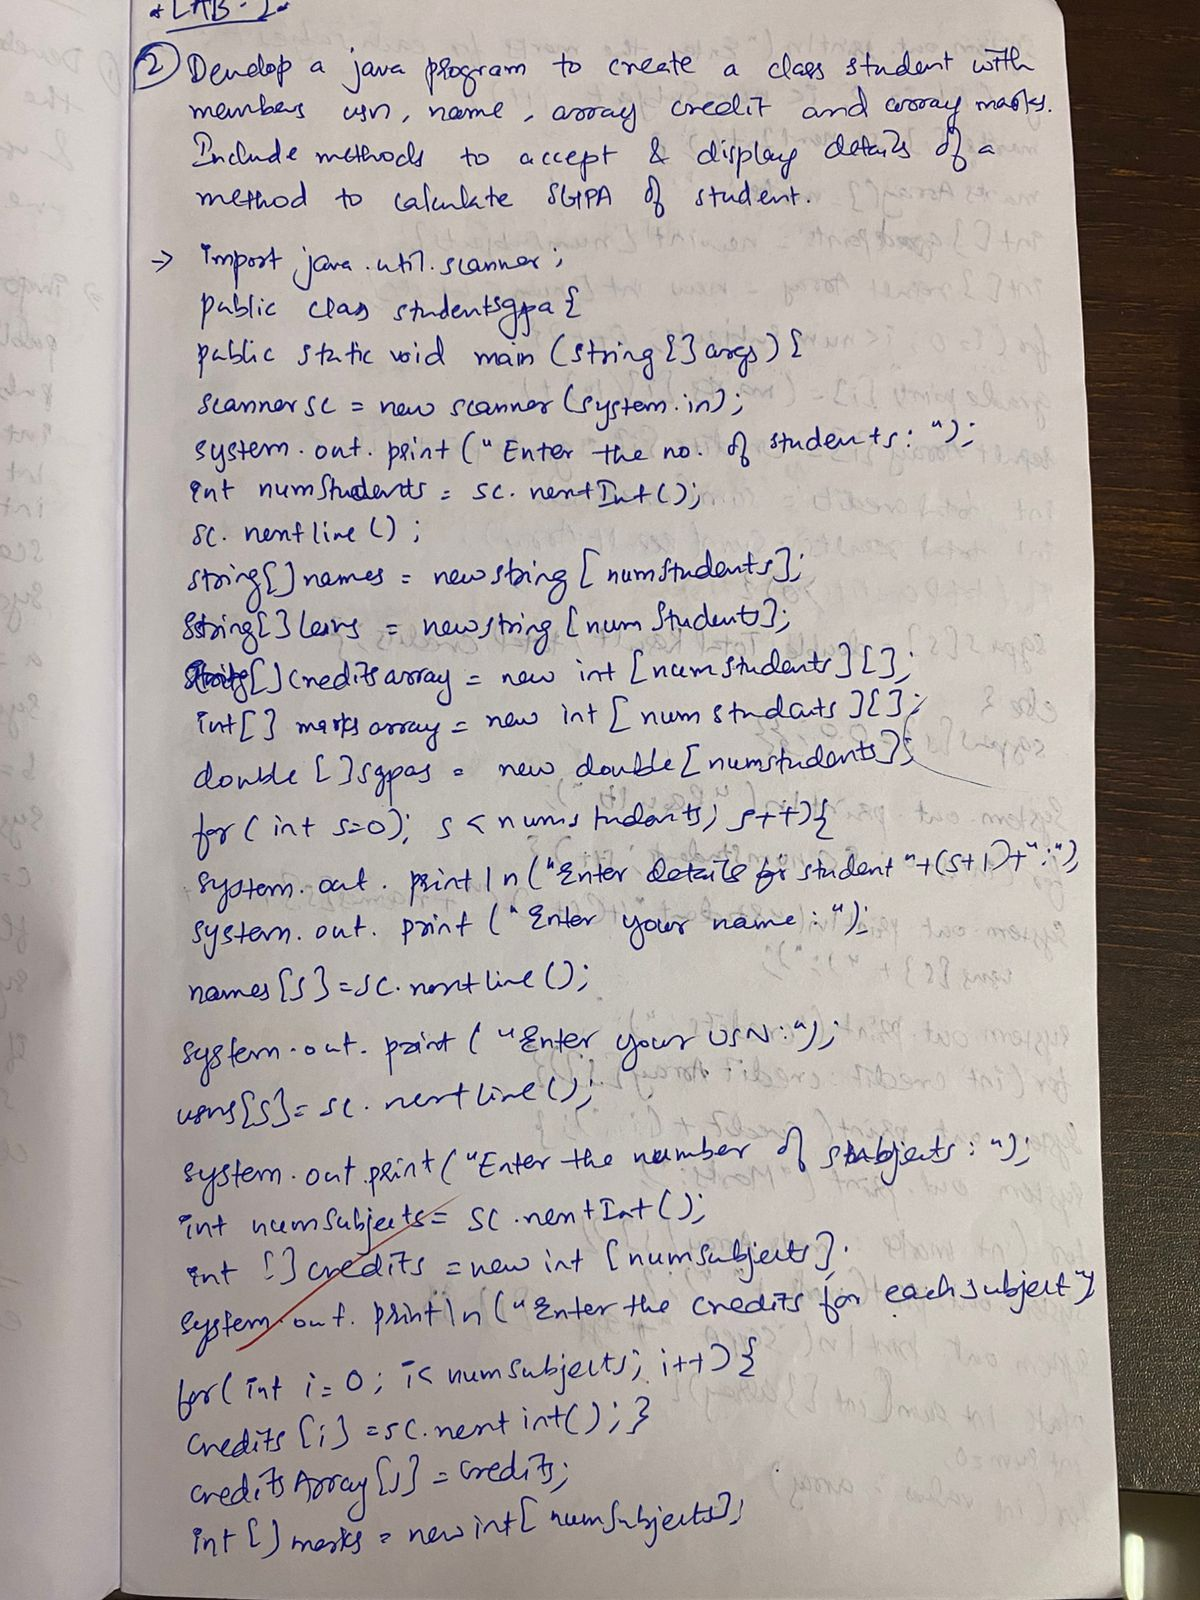 * LAB-2 *
② Develop a java program to create a class student with
members usn, name, array credit and array marks.
Include methods to accept & display details of a
method to calculate SGPA of student.
→ import java.util.scanner;
public class studentsgpa {
public static void main (string [] args) {
scanner sc = new scanner (system.in);
system.out.print ("Enter the no. of students: ");
int numStudents = sc.nextInt();
sc.nextline();
string[] names = new string [numStudents];
String[] = new string [num Students];
[] credits array = new int [numstudents][];
int[] marks array = new int [num students][];
double []sgpas = new double [numstudents];
for (int s=0); s < numstudents; s++){
system.out.println ("Enter details for student "+(s+1)+":")
system.out.print ("Enter your name: ");
names[s]=sc.nextline();
system.out.print ("Enter your USN:");
usns[s]=sc.nextline();
system.out.print ("Enter the number of subjects: ");
int numsubjects= sc.nextInt();
int []credits =new int [numsubjects].
system.out.println ("Enter the credits for each subject")
for( int i=0; i< numsubjects; i++){
credits [i] =sc.next int(); }
credits Array [s] = credits;
int [] marks = new int[numsubjects];